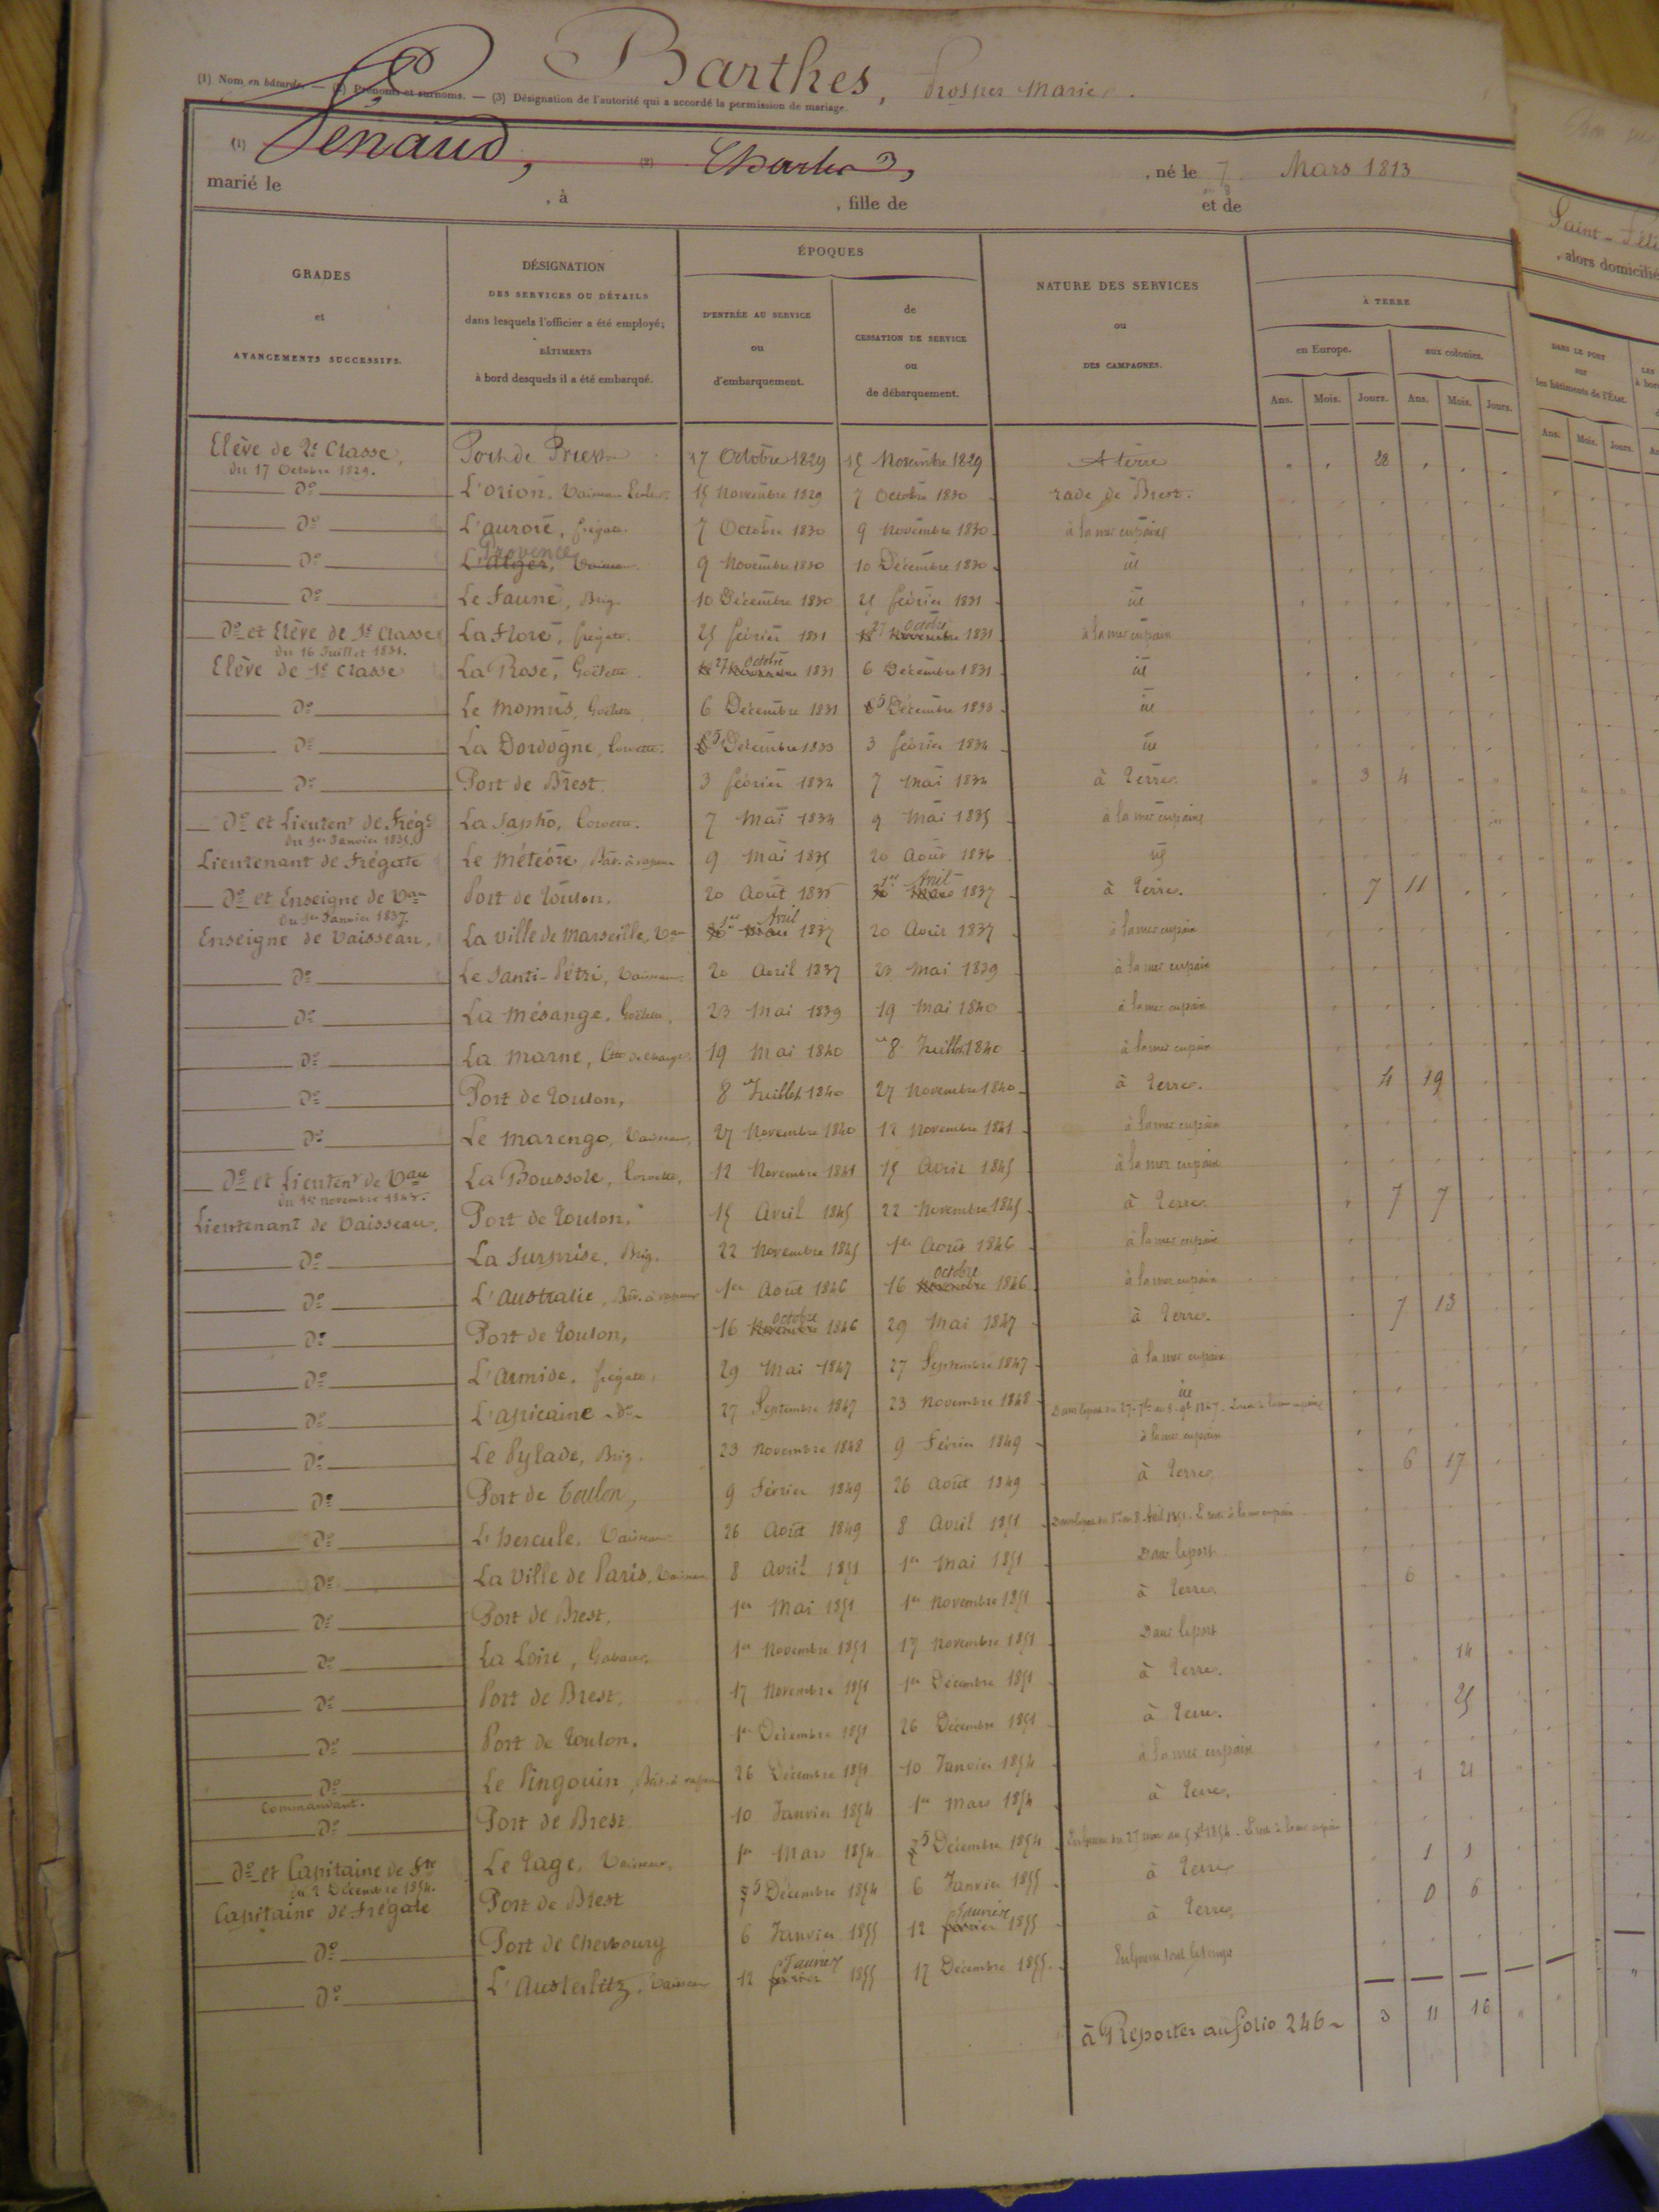 Barthes, Prosper Marie
(1) Nom en bâtarde. — (2) Prénoms et surnoms. — (3) Désignation de l'autorité qui a accordé la permission de mariage.
(1) Penaud, (2) Charles, , né le 7 Mars 1813
marié le , à , fille de et de
Saint-
, alors domicilié
GRADES et AVANCEMENTS SUCCESSIFS.
DÉSIGNATION DES SERVICES OU DÉTAILS dans lesquels l'officier a été employé; BÂTIMENTS à bord desquels il a été embarqué.
ÉPOQUES
D'ENTRÉE AU SERVICE ou d'embarquement.
de CESSATION DE SERVICE ou de débarquement.
NATURE DES SERVICES ou DES CAMPAGNES.
À TERRE
en Europe. aux colonies.
Ans. Mois. Jours. Ans. Mois. Jours.
DANS LE PORT sur les bâtiments de l'État.
Ans. Mois. Jours.
Elève de 2e Classe, Port de Brest 17 Octobre 1829 15 Novembre 1829 A terre 28
du 17 Octobre 1829.
Do L'Orion, Vaisseau Ecole 15 Novembre 1829 7 Octobre 1830 rade de Brest.
Do L'aurore, frégate. 7 Octobre 1830 9 Novembre 1830 à la mer en paix
Provence
Do L'alger, Vaisseau. 9 Novembre 1830 10 Décembre 1830 id
Do Le Faune, Brig. 10 Décembre 1830 25 février 1831 id
Do et Elève de 1e Classe La Flore, frégate. 25 février 1831 27 Octobre Novembre 1831 à la mer en paix
du 16 Juillet 1831.
Elève de 1e Classe La Rose, Goëlette. 27 Octobre Novembre 1831 6 Décembre 1831 id
Do Le Momus, Goëlette 6 Décembre 1831 5 Décembre 1833 id
Do La Dordogne, Corvette. 5 Décembre 1833 3 février 1834 id
Do Port de Brest. 3 février 1834 7 Mai 1834 à Terre. 3 4
Do et Lieutent de Frégte La Sapho, Corvette. 7 Mai 1834 9 Mai 1835 à la mer en paix
du 1er Janvier 1835.
Lieutenant de Frégate Le Météore, Bât. à vapeur 9 Mai 1835 20 Août 1836 id
Do et Enseigne de Vau Port de Toulon. 20 Août 1836 1er Avril 1837 à Terre. 7 11
du 1er Janvier 1837.
Enseigne de Vaisseau, La Ville de Marseille, Vau 1er Avril 1837 20 Avril 1837 à la mer en paix
Do Le Santi-Pétri, Vaisseau. 20 Avril 1837 23 Mai 1839 à la mer en paix
Do La Mésange, Goëlette, 23 Mai 1839 19 Mai 1840 à la mer en paix
Do La Marne, Cte de charge. 19 Mai 1840 8 Juillet 1840 à la mer en paix
Do Port de Toulon, 8 Juillet 1840 27 Novembre 1840 à Terre. 4 19
Do Le Marengo, Vaisseau, 27 Novembre 1840 12 Novembre 1841 à la mer en paix
Do et Lieutent de Vau La Boussole, Corvette, 12 Novembre 1841 15 Avril 1845 à la mer en paix
Lieutenant de Vaisseau. Port de Toulon. 15 Avril 1845 22 Novembre 1845 à Terre. 7 7
Do La Surprise, Brig. 22 Novembre 1845 1er Août 1846 à la mer en paix
Do L'Australie, Bât. à vapeur 1er Août 1846 16 Octobre Novembre 1846 à la mer en paix
Do Port de Toulon, 16 Octobre Novembre 1846 29 Mai 1847 à Terre. 7 13
Do L'Armide, frégate, 29 Mai 1847 27 Septembre 1847 à la mer en paix
Do L'apicaine - do - 27 Septembre 1847 23 Novembre 1848 id
Do Le Pylade, Brig. 23 Novembre 1848 9 Février 1849 à la mer en paix
Do Port de Toulon, 9 Février 1849 26 Août 1849 à Terre. 6 17
Do L'hercule, Vaisseau 26 Août 1849 8 Avril 1851
Do La Ville de Paris, Vaisseau 8 Avril 1851 1er Mai 1851 Dans le port
Do Port de Brest, 1er Mai 1851 1er Novembre 1851 à Terre. 6
Do La Loire, Gabare. 1er Novembre 1851 17 Novembre 1851 Dans le port
Do Port de Brest. 17 Novembre 1851 1er Décembre 1851 à Terre. 14
Do Port de Toulon. 1er Décembre 1851 26 Décembre 1851 à Terre. 25
Do Le Pingouin, Bât. à vapeur 26 Décembre 1851 10 Janvier 1854 à la mer en paix
Commandant.
Do Port de Brest 10 Janvier 1854 1er Mars 1854 à Terre. 1 21
Do et Capitaine de Fte Le Tage, Vaisseau, 1er Mars 1854 5 Décembre 1854
du 2 Décembre 1854.
Capitaine de Frégate Port de Brest 5 Décembre 1854 6 Janvier 1855 à Terre 1 1
Do Port de Cherbourg 6 Janvier 1855 12 Janvier février 1855 à Terre, 0 6
Do L'Austerlitz, Vaisseau 12 Janvier février 1855 17 Décembre 1855.
à Reporter au folio 246 3 11 16